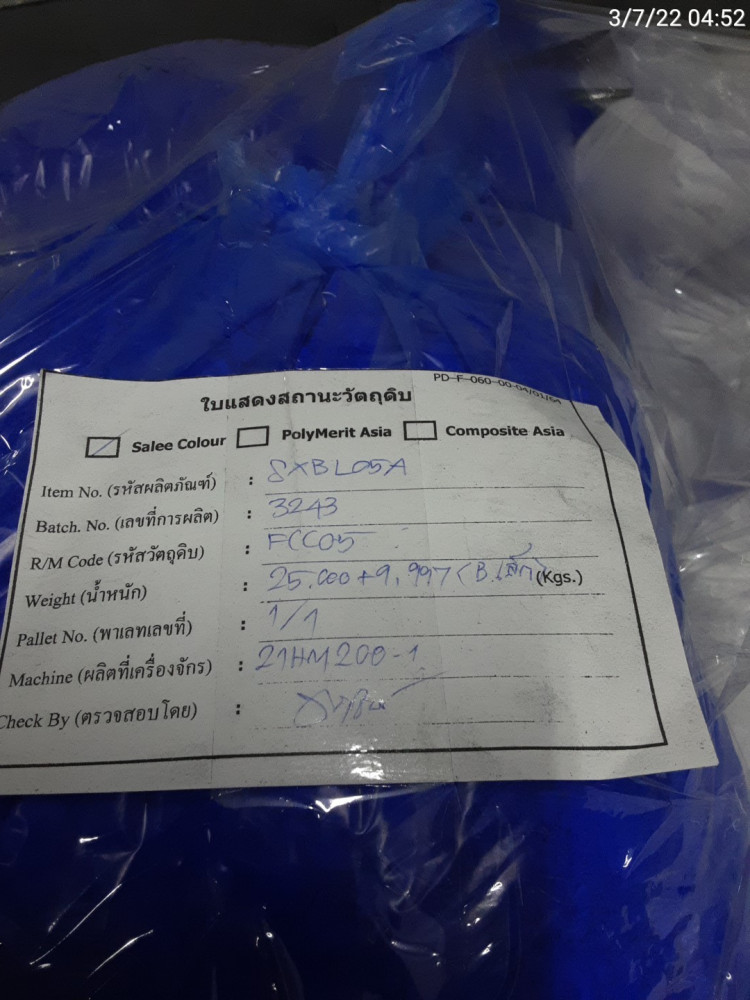 3/7/22 04:52
PD-F-060-00-04/01/64
ใบแสดงสถานะวัตถุดิบ
Salee Colour PolyMerit Asia Composite Asia
Item No. (รหัสผลิตภัณฑ์) : SXBL05A
Batch. No. (เลขที่การผลิต) : 3243
R/M Code (รหัสวัตถุดิบ) : FCC05
Weight (น้ำหนัก) : 25.000+9.997 (B.เล็ก) (Kgs.)
Pallet No. (พาเลทเลขที่) : 1/1
Machine (ผลิตที่เครื่องจักร) : 21HM200-1
Check By (ตรวจสอบโดย) :